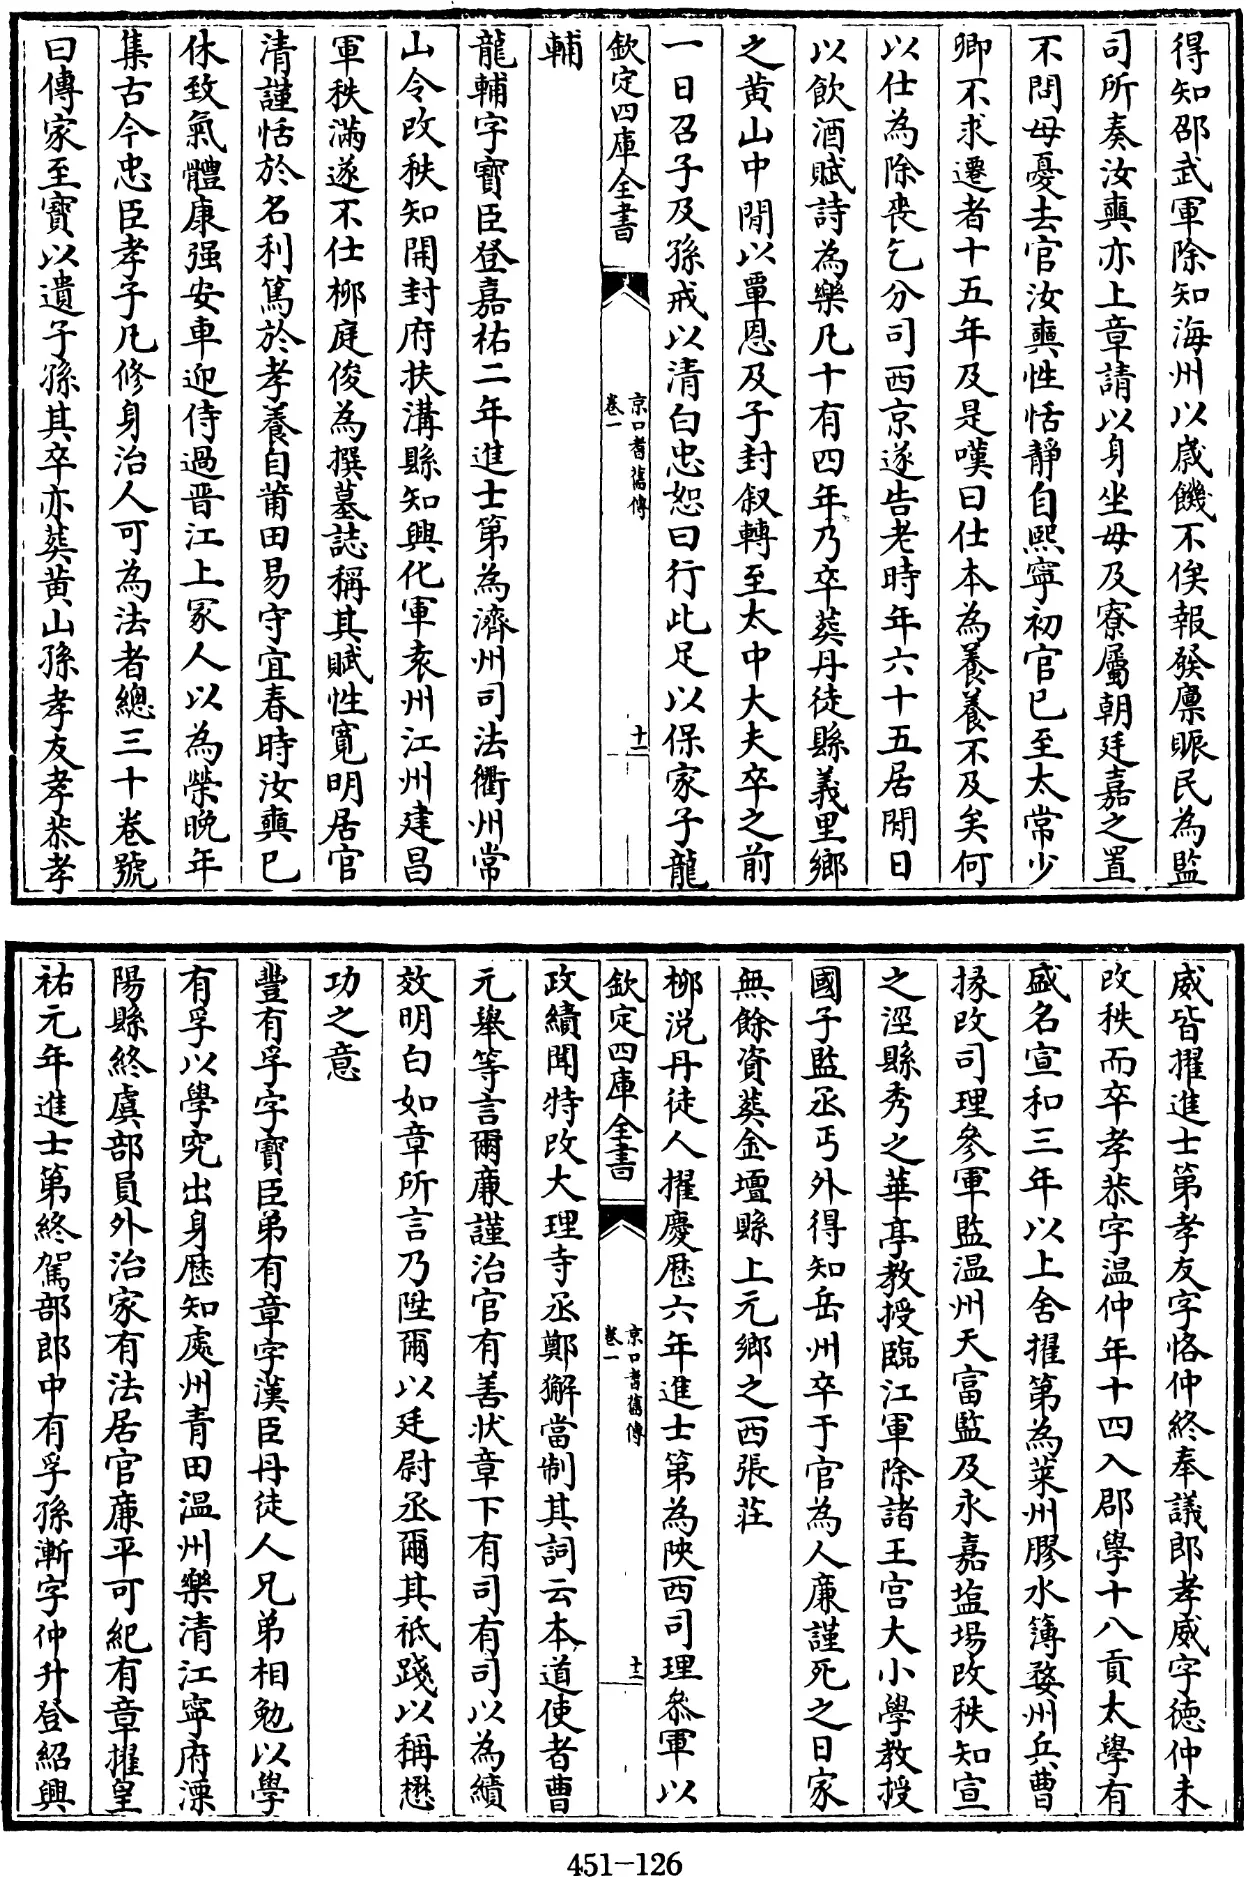 得知邵武軍除知海州以歲饑不俟報發廪賑民為監
司所奏汝奭亦上章請以身坐毋及寮屬朝廷嘉之置
不問母憂去官汝奭性恬靜自熙寧初官已至太常少
卿不求遷者十五年及是嘆曰仕本為養養不及矣何
以仕為除喪乞分司西京遂告老時年六十五居閒日
以飲酒賦詩為樂凡十有四年乃卒葬丹徒縣義里鄉
之黄山中閒以覃恩及子封叙轉至太中大夫卒之前
一日召子及孫戒以清白忠恕曰行此足以保家子龍
欽定四庫全書
京口耆舊傳
卷一
十一
輔
龍輔字寳臣登嘉祐二年進士第為濟州司法衢州常
山令改秩知開封府扶溝縣知興化軍袁州江州建昌
軍秩滿遂不仕柳庭俊為撰墓誌稱其賦性寛明居官
清謹恬於名利篤於孝養自莆田易守宜春時汝奭已
休致氣體康强安車迎侍過晋江上冢人以為榮晚年
集古今忠臣孝子凡修身治人可為法者總三十卷號
曰傳家至寳以遺子孫其卒亦葬黄山孫孝友孝恭孝
威皆擢進士第孝友字恪仲終奉議郎孝威字徳仲未
改秩而卒孝恭字温仲年十四入郡學十八貢太學有
盛名宣和三年以上舍擢第為萊州膠水簿婺州兵曹
掾改司理參軍監温州天富監及永嘉塩場改秩知宣
之涇縣秀之華亭教授臨江軍除諸王宫大小學教授
國子監丞丐外得知岳州卒于官為人廉謹死之日家
無餘資葬金壇縣上元鄉之西張莊
柳説丹徒人擢慶厯六年進士第為陜西司理參軍以
欽定四庫全書
京口耆舊傳
卷一
十二
政績聞特改大理寺丞鄭獬當制其詞云本道使者曹
元舉等言爾廉謹治官有善状章下有司有司以為績
效明白如章所言乃陞爾以廷尉丞爾其祗踐以稱懋
功之意
豐有孚字寳臣弟有章字漢臣丹徒人兄弟相勉以學
有孚以學究出身厯知處州青田温州樂清江寧府溧
陽縣終虞部員外治家有法居官亷平可紀有章擢皇
祐元年進士第終駕部郎中有孚孫漸字仲升登紹興
451-126